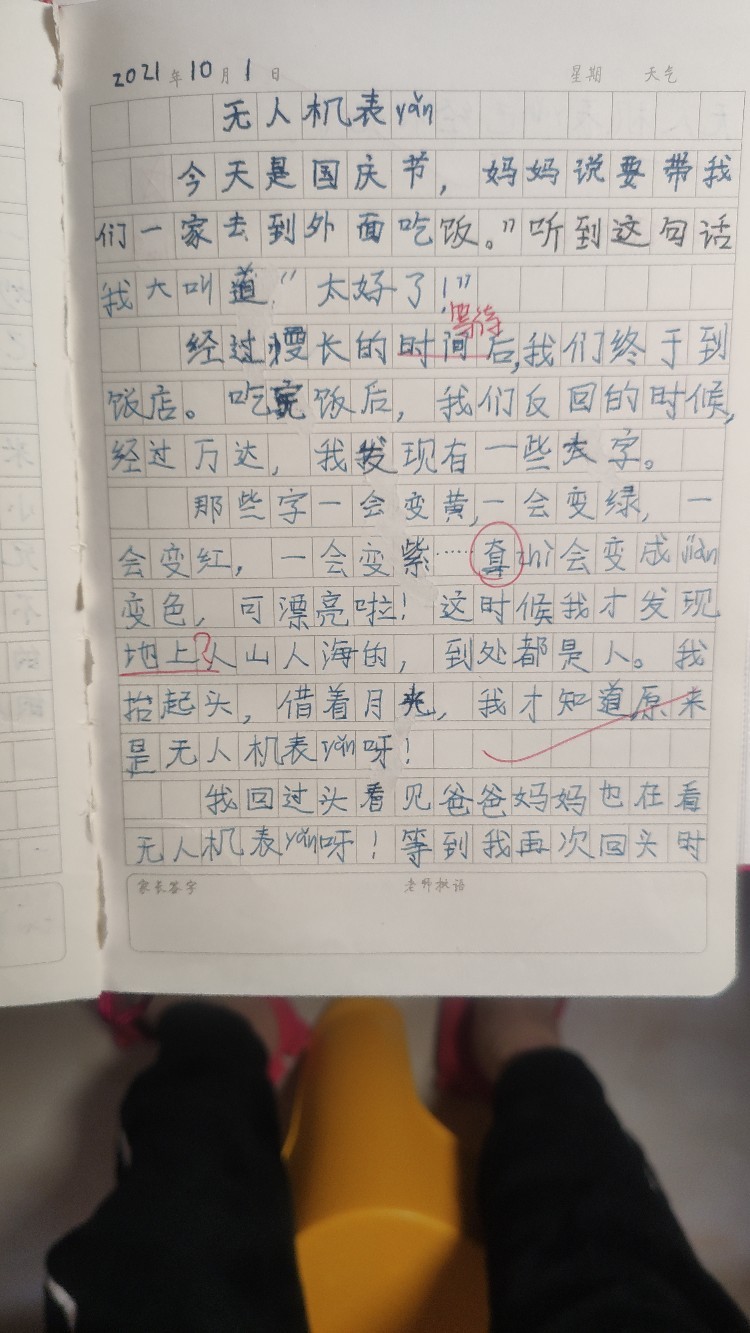 2021年10月1日 星期 天气
无人机表yǎn
今天是国庆节，妈妈说要带我
们一家去到外面吃饭。”听到这句话
我大叫道“太好了！”
等待
经过漫长的时间后，我们终于到
饭店。吃完饭后，我们反回的时候，
经过万达，我发现有一些大字。
那些字一会变黄，一会变绿，一
会变红，一会变紫……zhì会变成jiàn
变色，可漂亮啦！这时候我才发现
地上人山人海的，到处都是人。我
抬起头，借着月光，我才知道原来
是无人机表yǎn呀！
我回过头看见爸爸妈妈也在看
无人机表yǎn呀！等到我再次回头时
家长签字 老师批语